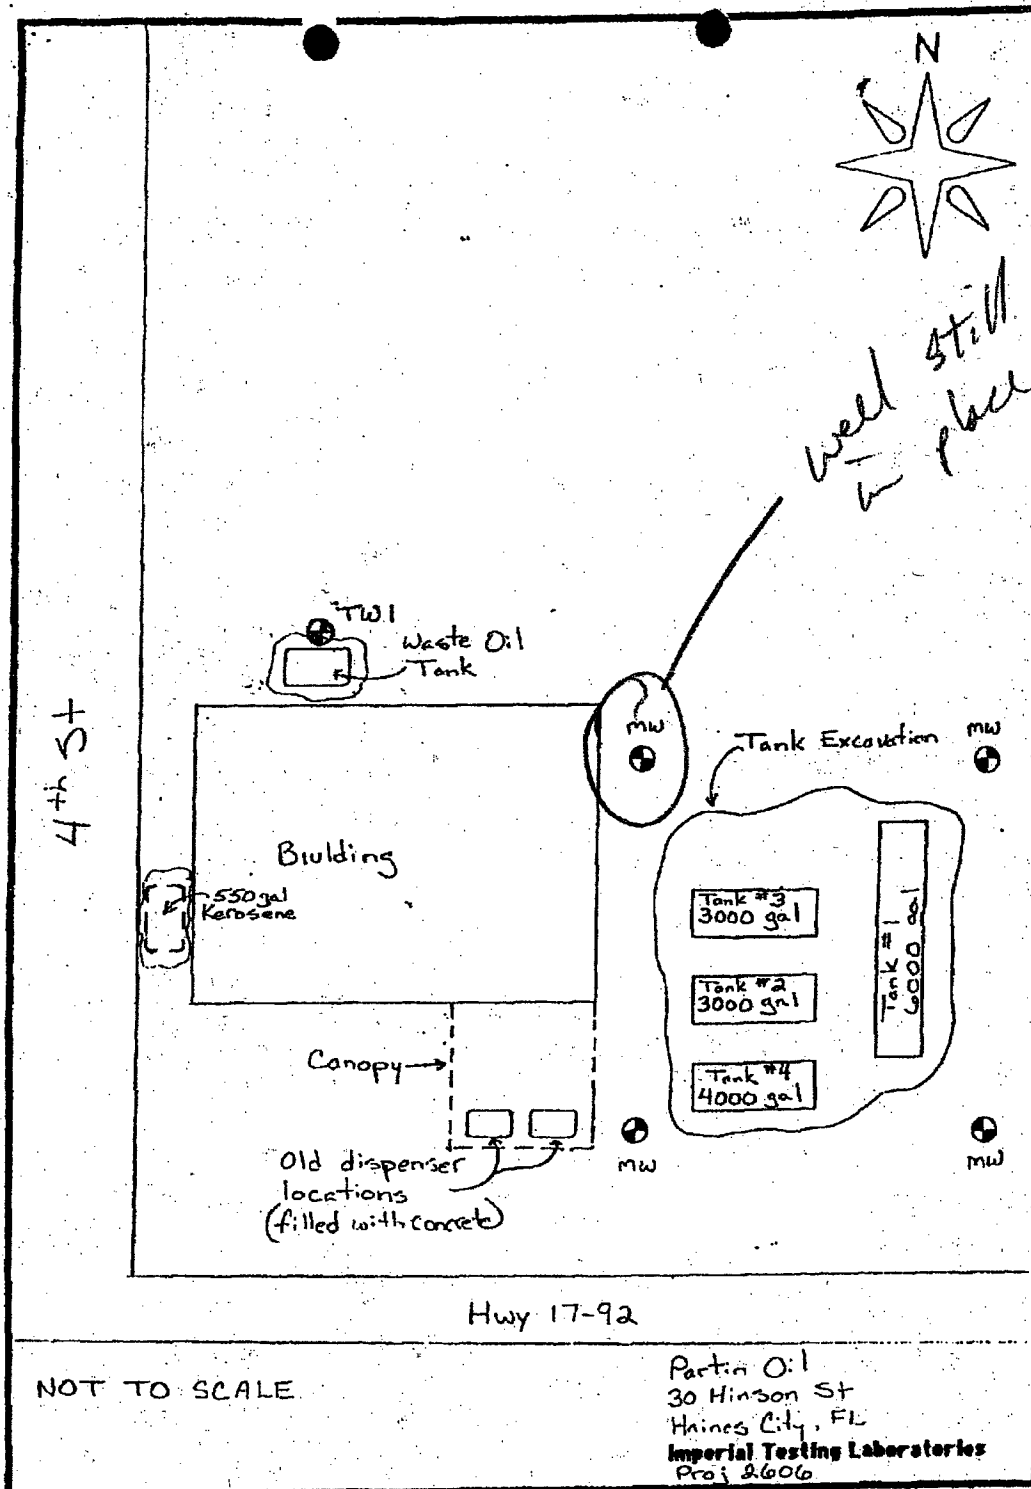 N
well still
in place
TW1
Waste Oil
Tank
mw
Tank Excavation
mw
4th St
Biulding
550 gal
Kerosene
Tank #3
3000 gal
Tank #1
6000 gal
Tank #2
3000 gal
Canopy
Tank #4
4000 gal
mw
mw
Old dispenser
locations
(filled with concrete)
Hwy 17-92
NOT TO SCALE
Partin Oil
30 Hinson St
Haines City, FL
Imperial Testing Laboratories
Proj 2606